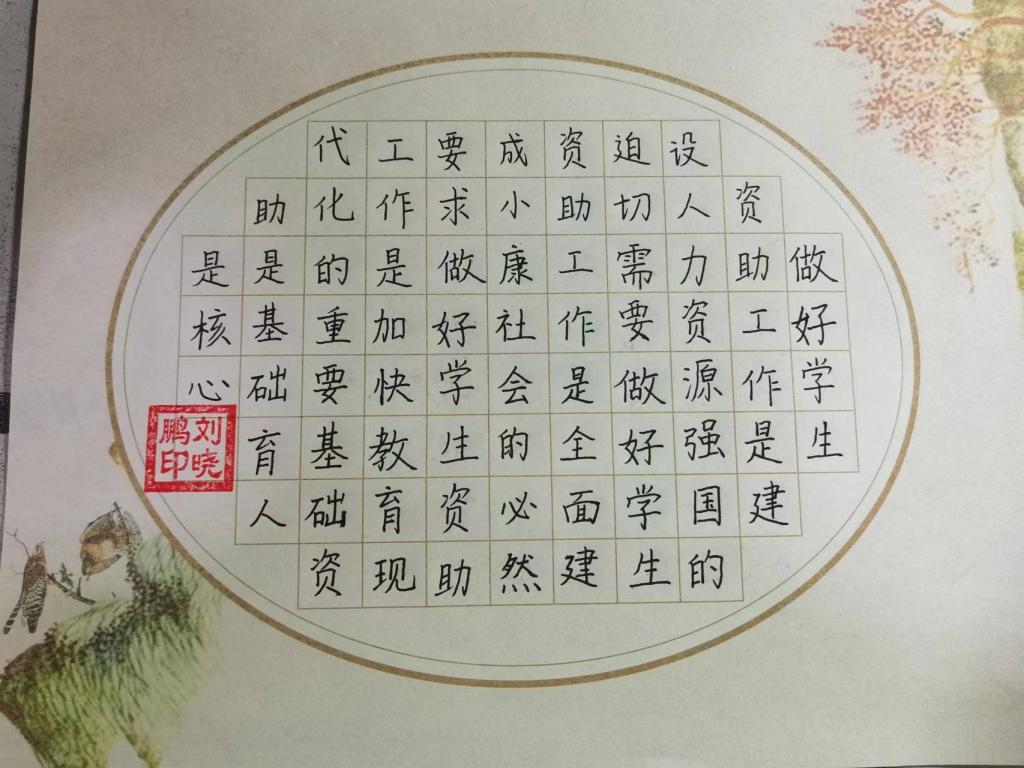 做好学生
资助工作是建
设人力资源强国的
迫切需要做好学生
资助工作是全面建
成小康社会的必然
要求做好学生资助
工作是加快教育现
代化的重要基础资
助是基础育人
是核心
刘晓
鹏印